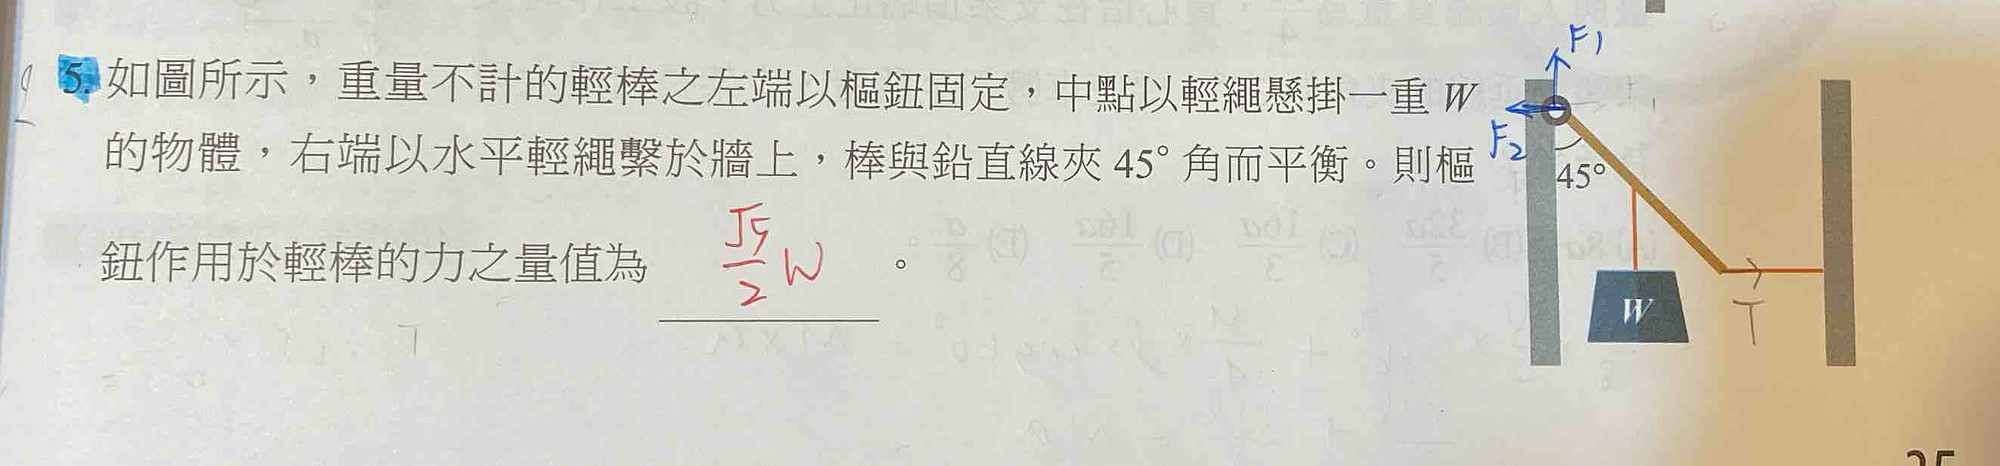 5. 如圖所示，重量不計的輕棒之左端以樞鈕固定，中點以輕繩懸掛一重 W
的物體，右端以水平輕繩繫於牆上，棒與鉛直線夾 45° 角而平衡。則樞
鈕作用於輕棒的力之量值為 √5/2 W 。
F1
F2
45°
W
T